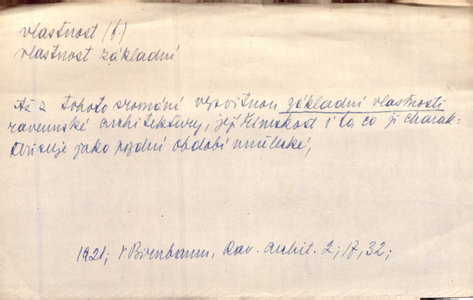 vlastnost (f.)
vlastnost základní
Až z tohoto srovnání vysvitnou základní vlastnosti
ravennské architektury, její římskost i to, co ji charak-
terisuje jako pozdní období umělecké;
1921; V Birnbaum, Rav. archit. 2; 17, 32;